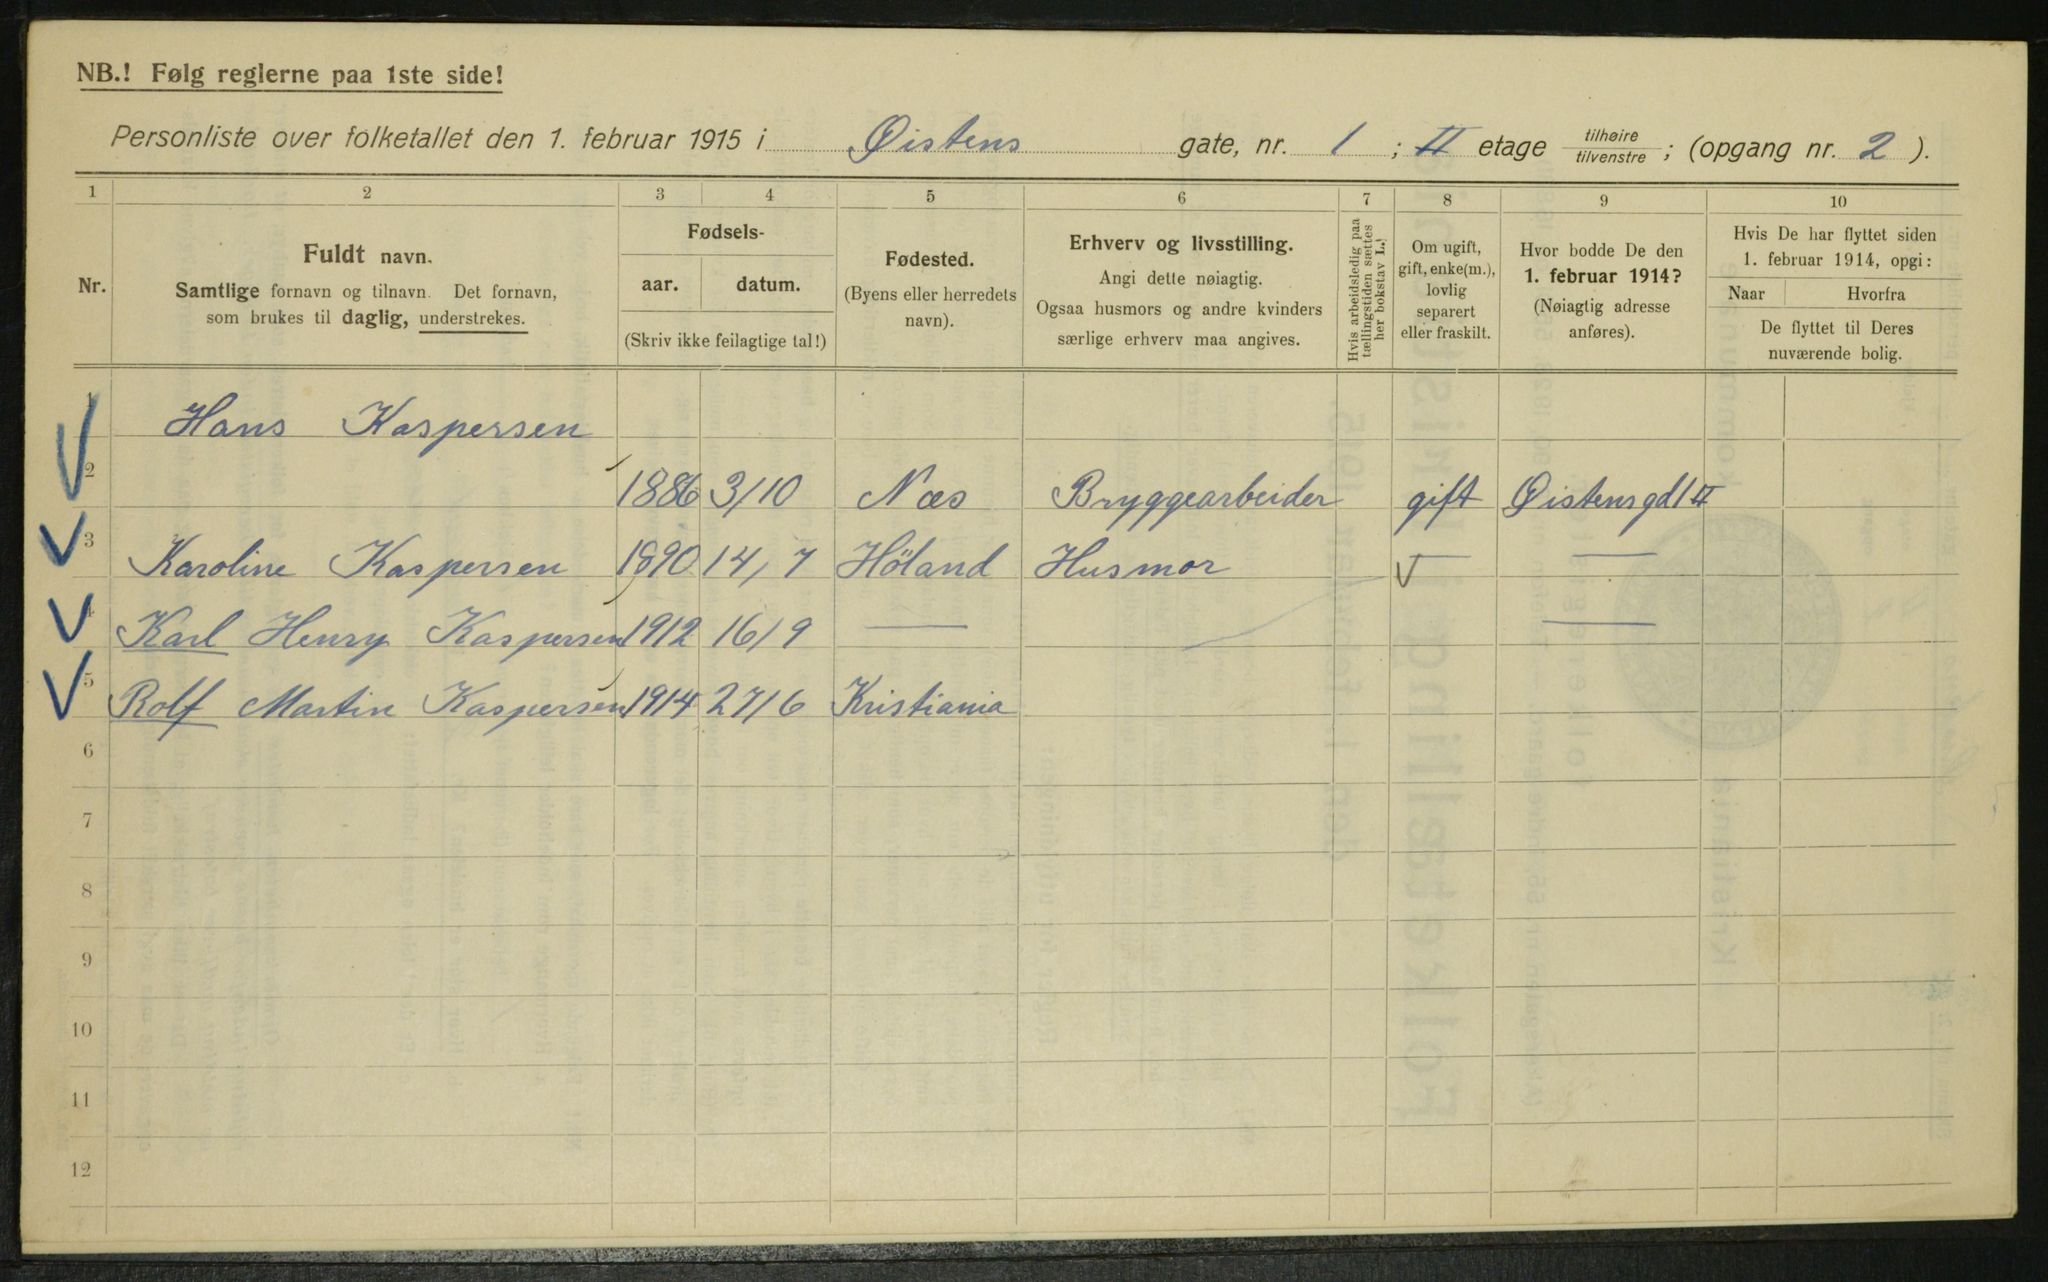 NB.! Følg reglerne paa 1ste side!
Personliste over folketallet den 1. februar 1915 i Øistens gate, nr. 1 ; II etage tilhøire / tilvenstre ; (opgang nr. 2 ).
1 2 3 4 5 6 7 8 9 10
Nr.
Fuldt navn.
Samtlige fornavn og tilnavn. Det fornavn,
som brukes til daglig, understrekes.
Fødsels-
aar. datum.
(Skriv ikke feilagtige tal!)
Fødested.
(Byens eller herredets
navn).
Erhverv og livsstilling.
Angi dette nøiagtig.
Ogsaa husmors og andre kvinders
særlige erhverv maa angives.
Hvis arbeidsledig paa
tællingstiden sættes
her bokstav L.!
Om ugift,
gift, enke(m.),
lovlig
separert
eller fraskilt.
Hvor bodde De den
1. februar 1914?
(Nøiagtig adresse
anføres).
Hvis De har flyttet siden
1. februar 1914, opgi:
Naar Hvorfra
De flyttet til Deres
nuværende bolig.
1 Hans Kaspersen
2 1886 3/10 Næs Bryggearbeider gift Øistensgd 1 II
3 Karoline Kaspersen 1890 14/7 Höland Husmor — —
4 Karl Henry Kaspersen 1912 16/9 — —
5 Rolf Martin Kaspersen 1914 27/6 Kristiania
6
7
8
9
10
11
12